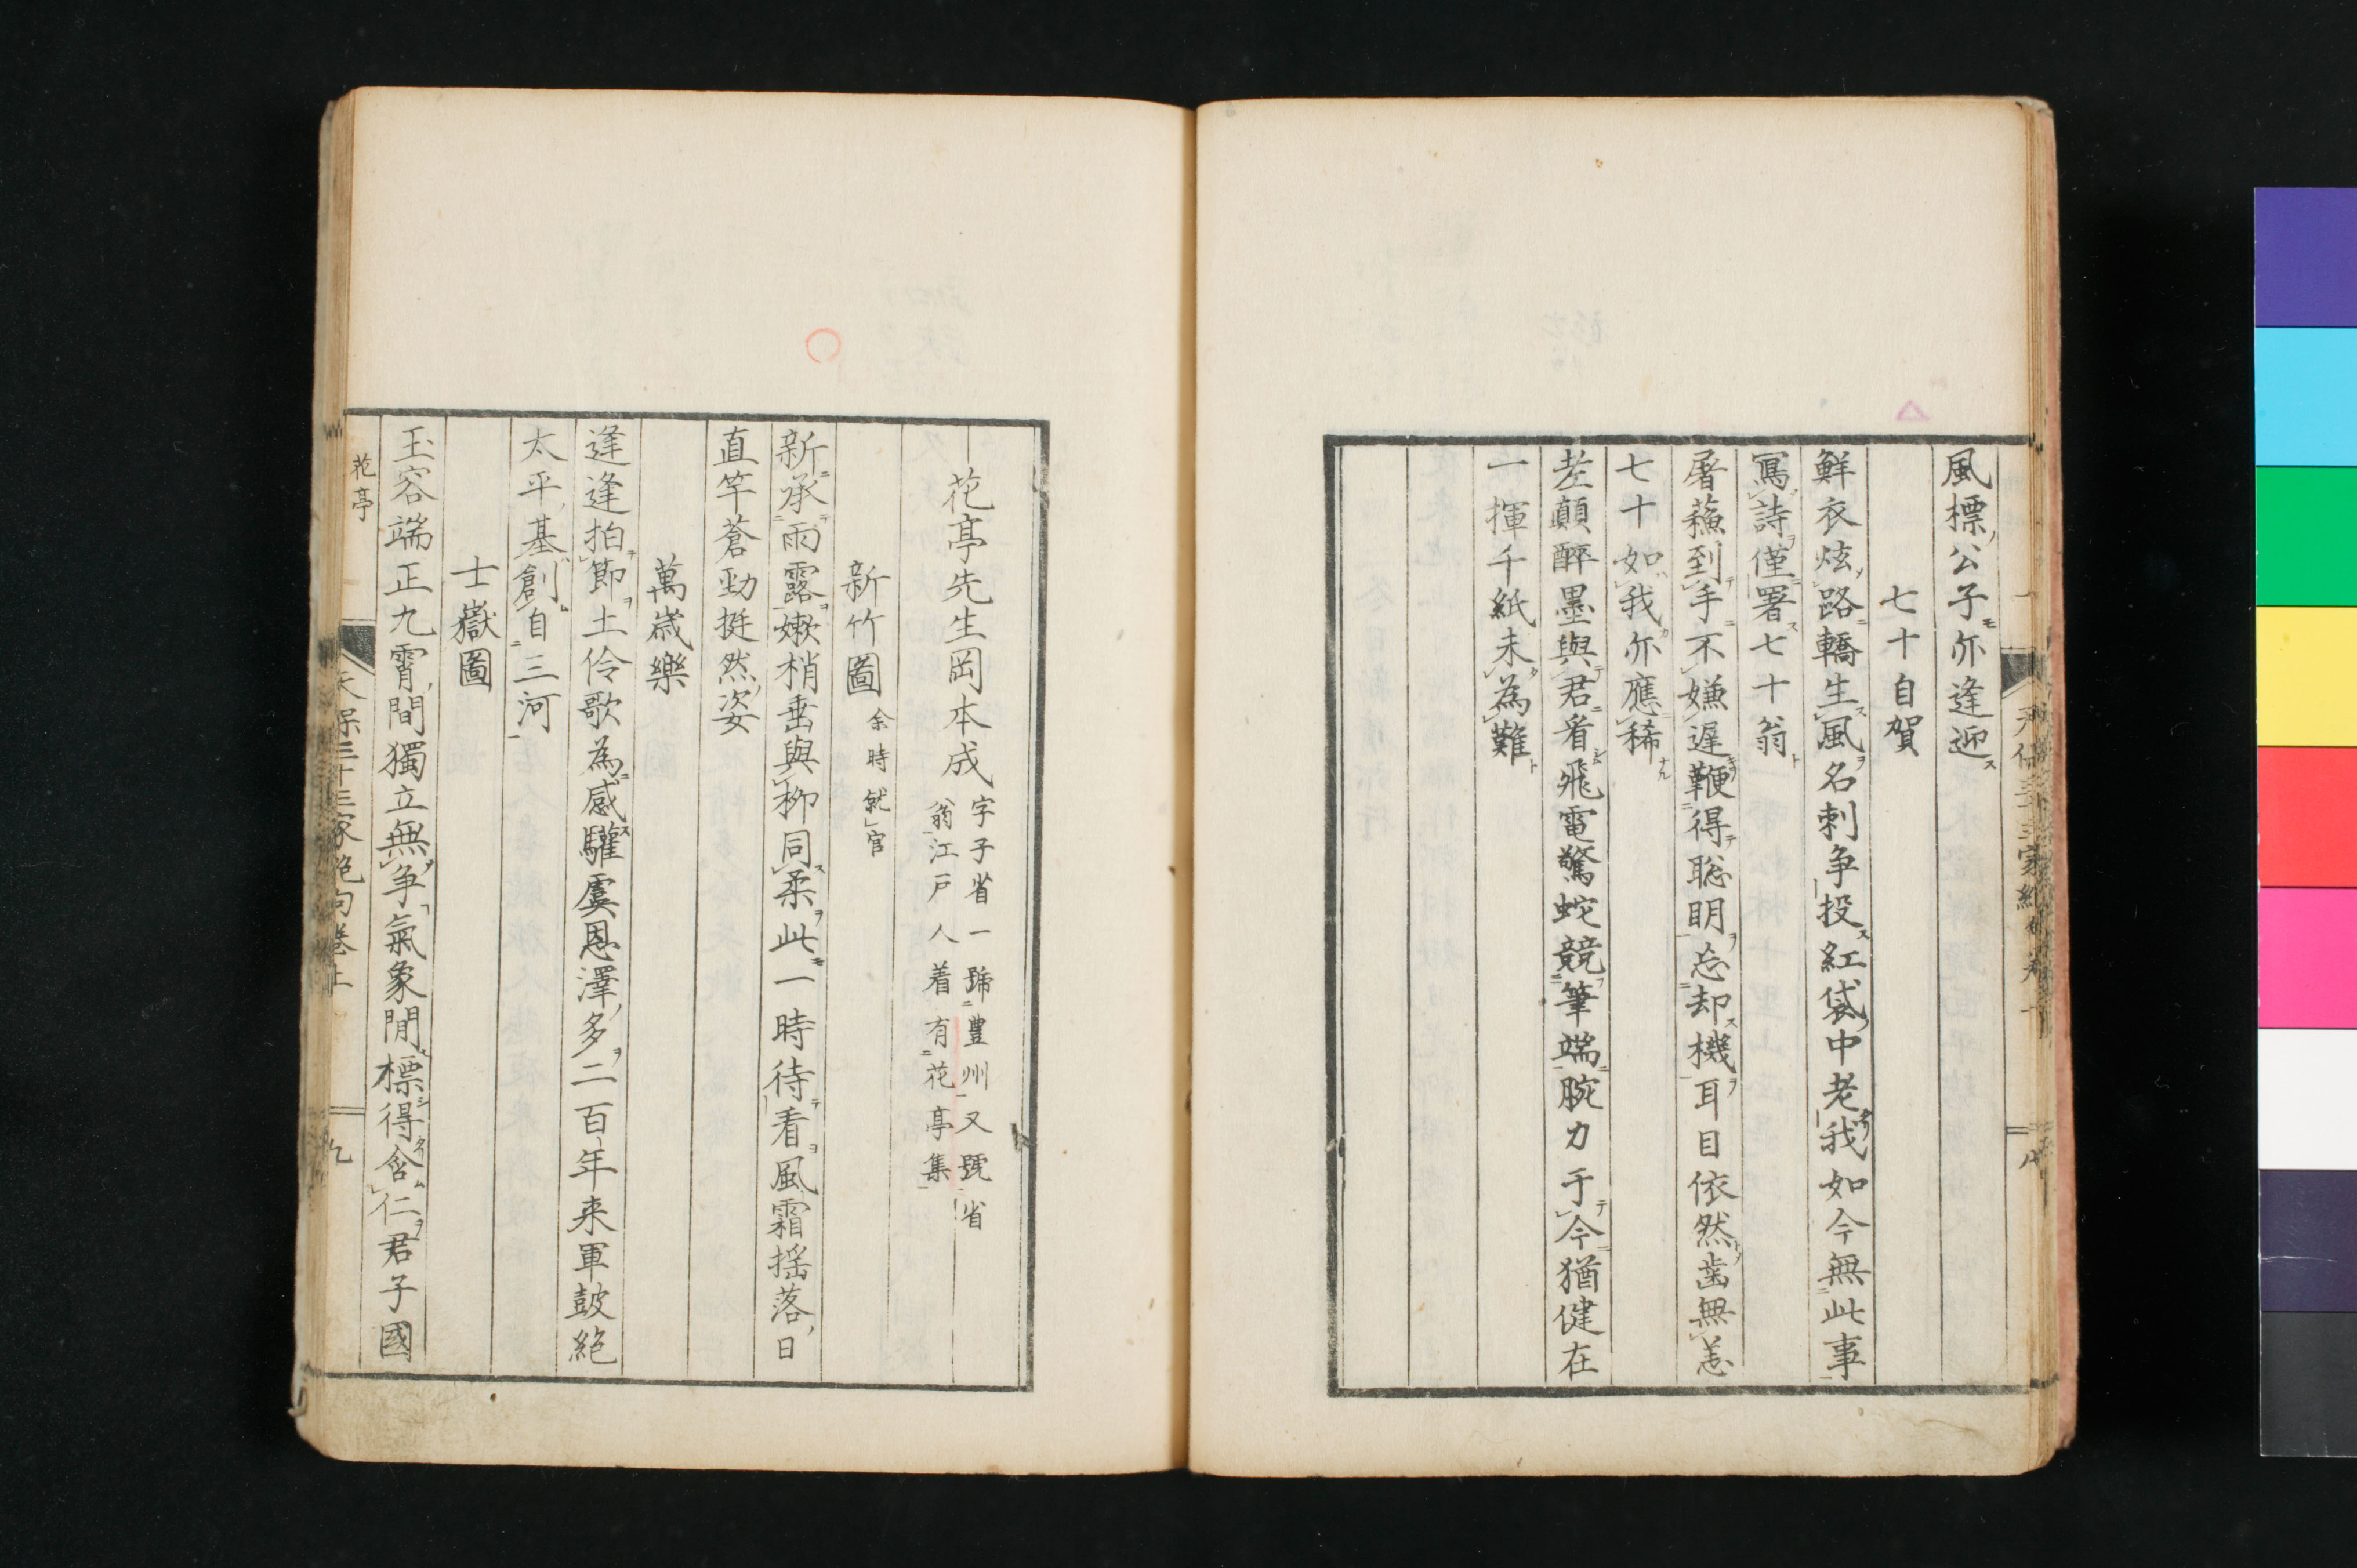 風標公子亦逢迎
七十自賀
鮮衣炫路轎生風名刺争投紅袋中老我如今無此事
寫詩僅署七十翁
屠蘓到手不嫌遲鞭得聡明忘却機耳目依然歯無恙
七十如我亦應稀
差顛醉墨與君看飛電驚蛇競筆端腕力于今猶健在
一揮千紙未為難
花亭先生岡本成
字子省一號豊州又號省
翁江戸人着有花亭集
新竹圖
余時就官
新承雨露嫩梢垂與柳同柔此一時待看風霜揺落日
直竿蒼勁挺然姿
萬歳樂
逢逢拍節土伶歌為感驩虞恩澤多二百年来軍鼓絶
太平基創自三河
士嶽圖
玉容端正九霄間獨立無争氣象閒標得含仁君子國
花亭
天保三十三家絶句巻上
九